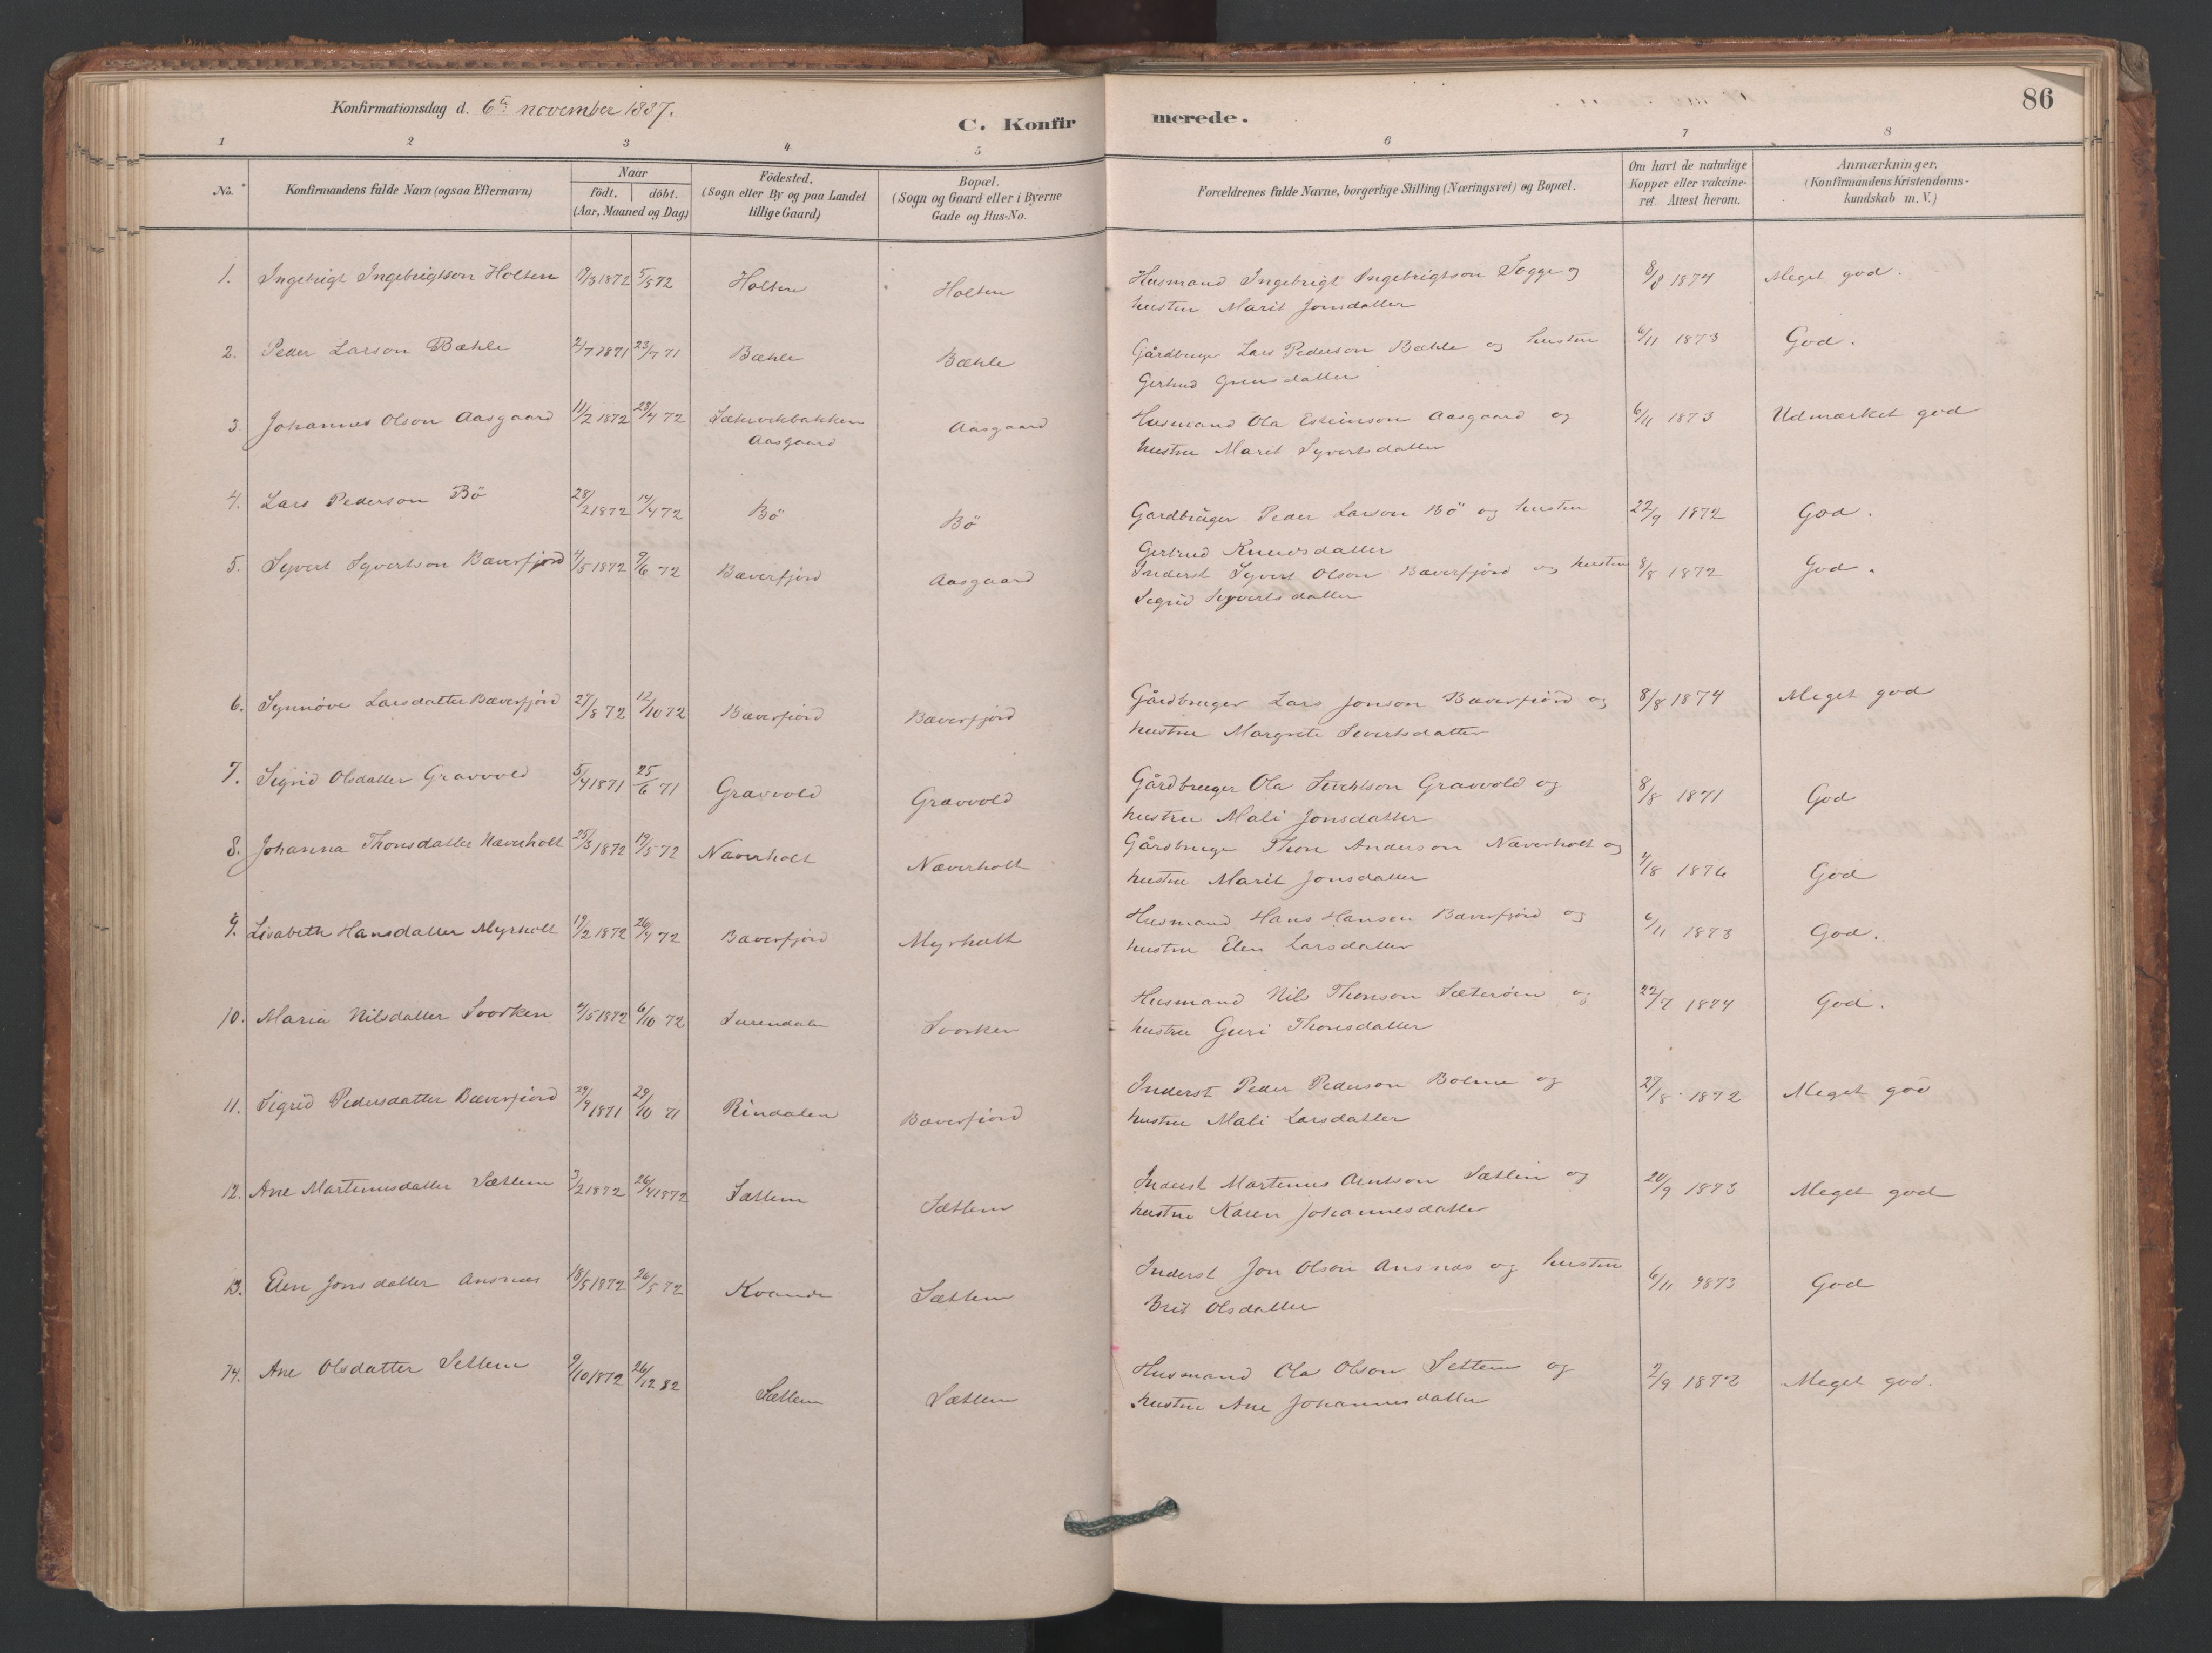 Konfirmationsdag d. 6te november 1887.
C. Konfir
merede.
86
1 2 3 4 5 6 7 8
No.
Konfirmandens fulde Navn (ogsaa Efternavn)
Naar
födt. döbt.
(Aar, Maaned og Dag)
Födested.
(Sogn eller By og paa Landet
tillige Gaard)
Bopæl.
(Sogn og Gaard eller i Byerne
Gade og Hus-No.
Forældrenes fulde Navne, borgerlige Stilling (Næringsvei) og Bopæl.
Om havt de naturlige
Kopper eller vakcine-
ret. Attest herom.
Anmærkninger,
(Konfirmandens Kristendoms-
kundskab m. V.)
1. Ingebrigt Ingebrigtson Holten 19/3 1872 5/5 72 Holten Holten Husmand Ingebrigt Ingebrigtson Sogge og 8/8 1874 Meget god.
hustru Marit Jonsdatter
2. Peder Larson Bæhle 2/7 1871 23/7 71 Bæhle Bæhle Gårdbruger Lars Pederson Bæhle og hustru 6/11 1873 God.
Gertrud
3. Johannes Olson Aasgaard 11/2 1872 28/4 72 Aasgaard Husmand Ola Aasgaard og 6/11 1873 Udmærket god
Aasgaard hustru Marit Syvertsdatter
4. Lars Pederson Bö 28/2 1872 14/4 72 Bö Bö Gardbrüger Peder Larson Bö og hustru 22/9 1872 God.
Gertrud Knudsdatter
5. Syvert Syvertson Bæverfjord 4/5 1872 9/6 72 Bæverfjord Aasgaard Inderst Syvert Olson Bæverfjord og hustru 8/8 1872 God.
Sigrid Syvertsdatter
6. Synnöve Larsdatter Bæverfjord 27/8 72 12/10 72 Bæverfjord Bæverfjord Gårdbruger Lars Jonson Bæverfjord og 8/8 1874 Meget god
hustru Margrete Sivertsdatter
7. Sigrid Olsdatter Gravvold 5/4 1871 25/6 71 Gravvold Gravvold Gårdbruger Ola Sivertson Gravvold og 8/8 1871 God
hustru Mali Jonsdatter
8. Johanna Thonsdatter Næverholt 25/3 1872 19/5 72 Næverholt Næverholt Gårdbruger Thon Anderson Næverholt og 4/8 1876 God
hustru Marit Jonsdatter
9. Lisabeth Hansdatter Myrholt 19/2 1872 26/4 72 Bæverfjord Myrholt Husmand Hans Hansen Bæverfjord og 6/11 1873 God.
hustru Elen Larsdatter
10. Maria Nilsdatter Svorken 4/5 1872 6/10 72 Surendalen Svorken Husmand Nils Thonson Sæteröien og 22/7 1874 God.
hustru Guri Thonsdatter
11. Sigrid Pedersdatter Bæverfjord 29/9 1871 29/10 71 Rindalen Bæverfjord Inderst Peder Pederson Bolme og 27/8 1872 Meget god
hustru Mali Larsdatter
12. Ane Martinusdatter Sættem 3/2 1872 26/4 1872 Sættem Sættem Inderst Martinus Arntson Sættem og 20/9 1873 Meget god
hustru Karen Johannesdatter
13. Elen Jonsdatter Ansnæs 18/5 1872 26/5 72 Kvande Sættem Inderst Jon Olson Ansnæs og hustru 6/11 1873 God
Brit Olsdatter
14. Ane Olsdatter Settem 9/10 1872 26/12 82 Sættem Sættem Husmand Ola Olson Settem og 2/9 1872 Meget god.
hustru Ane Johannesdatter